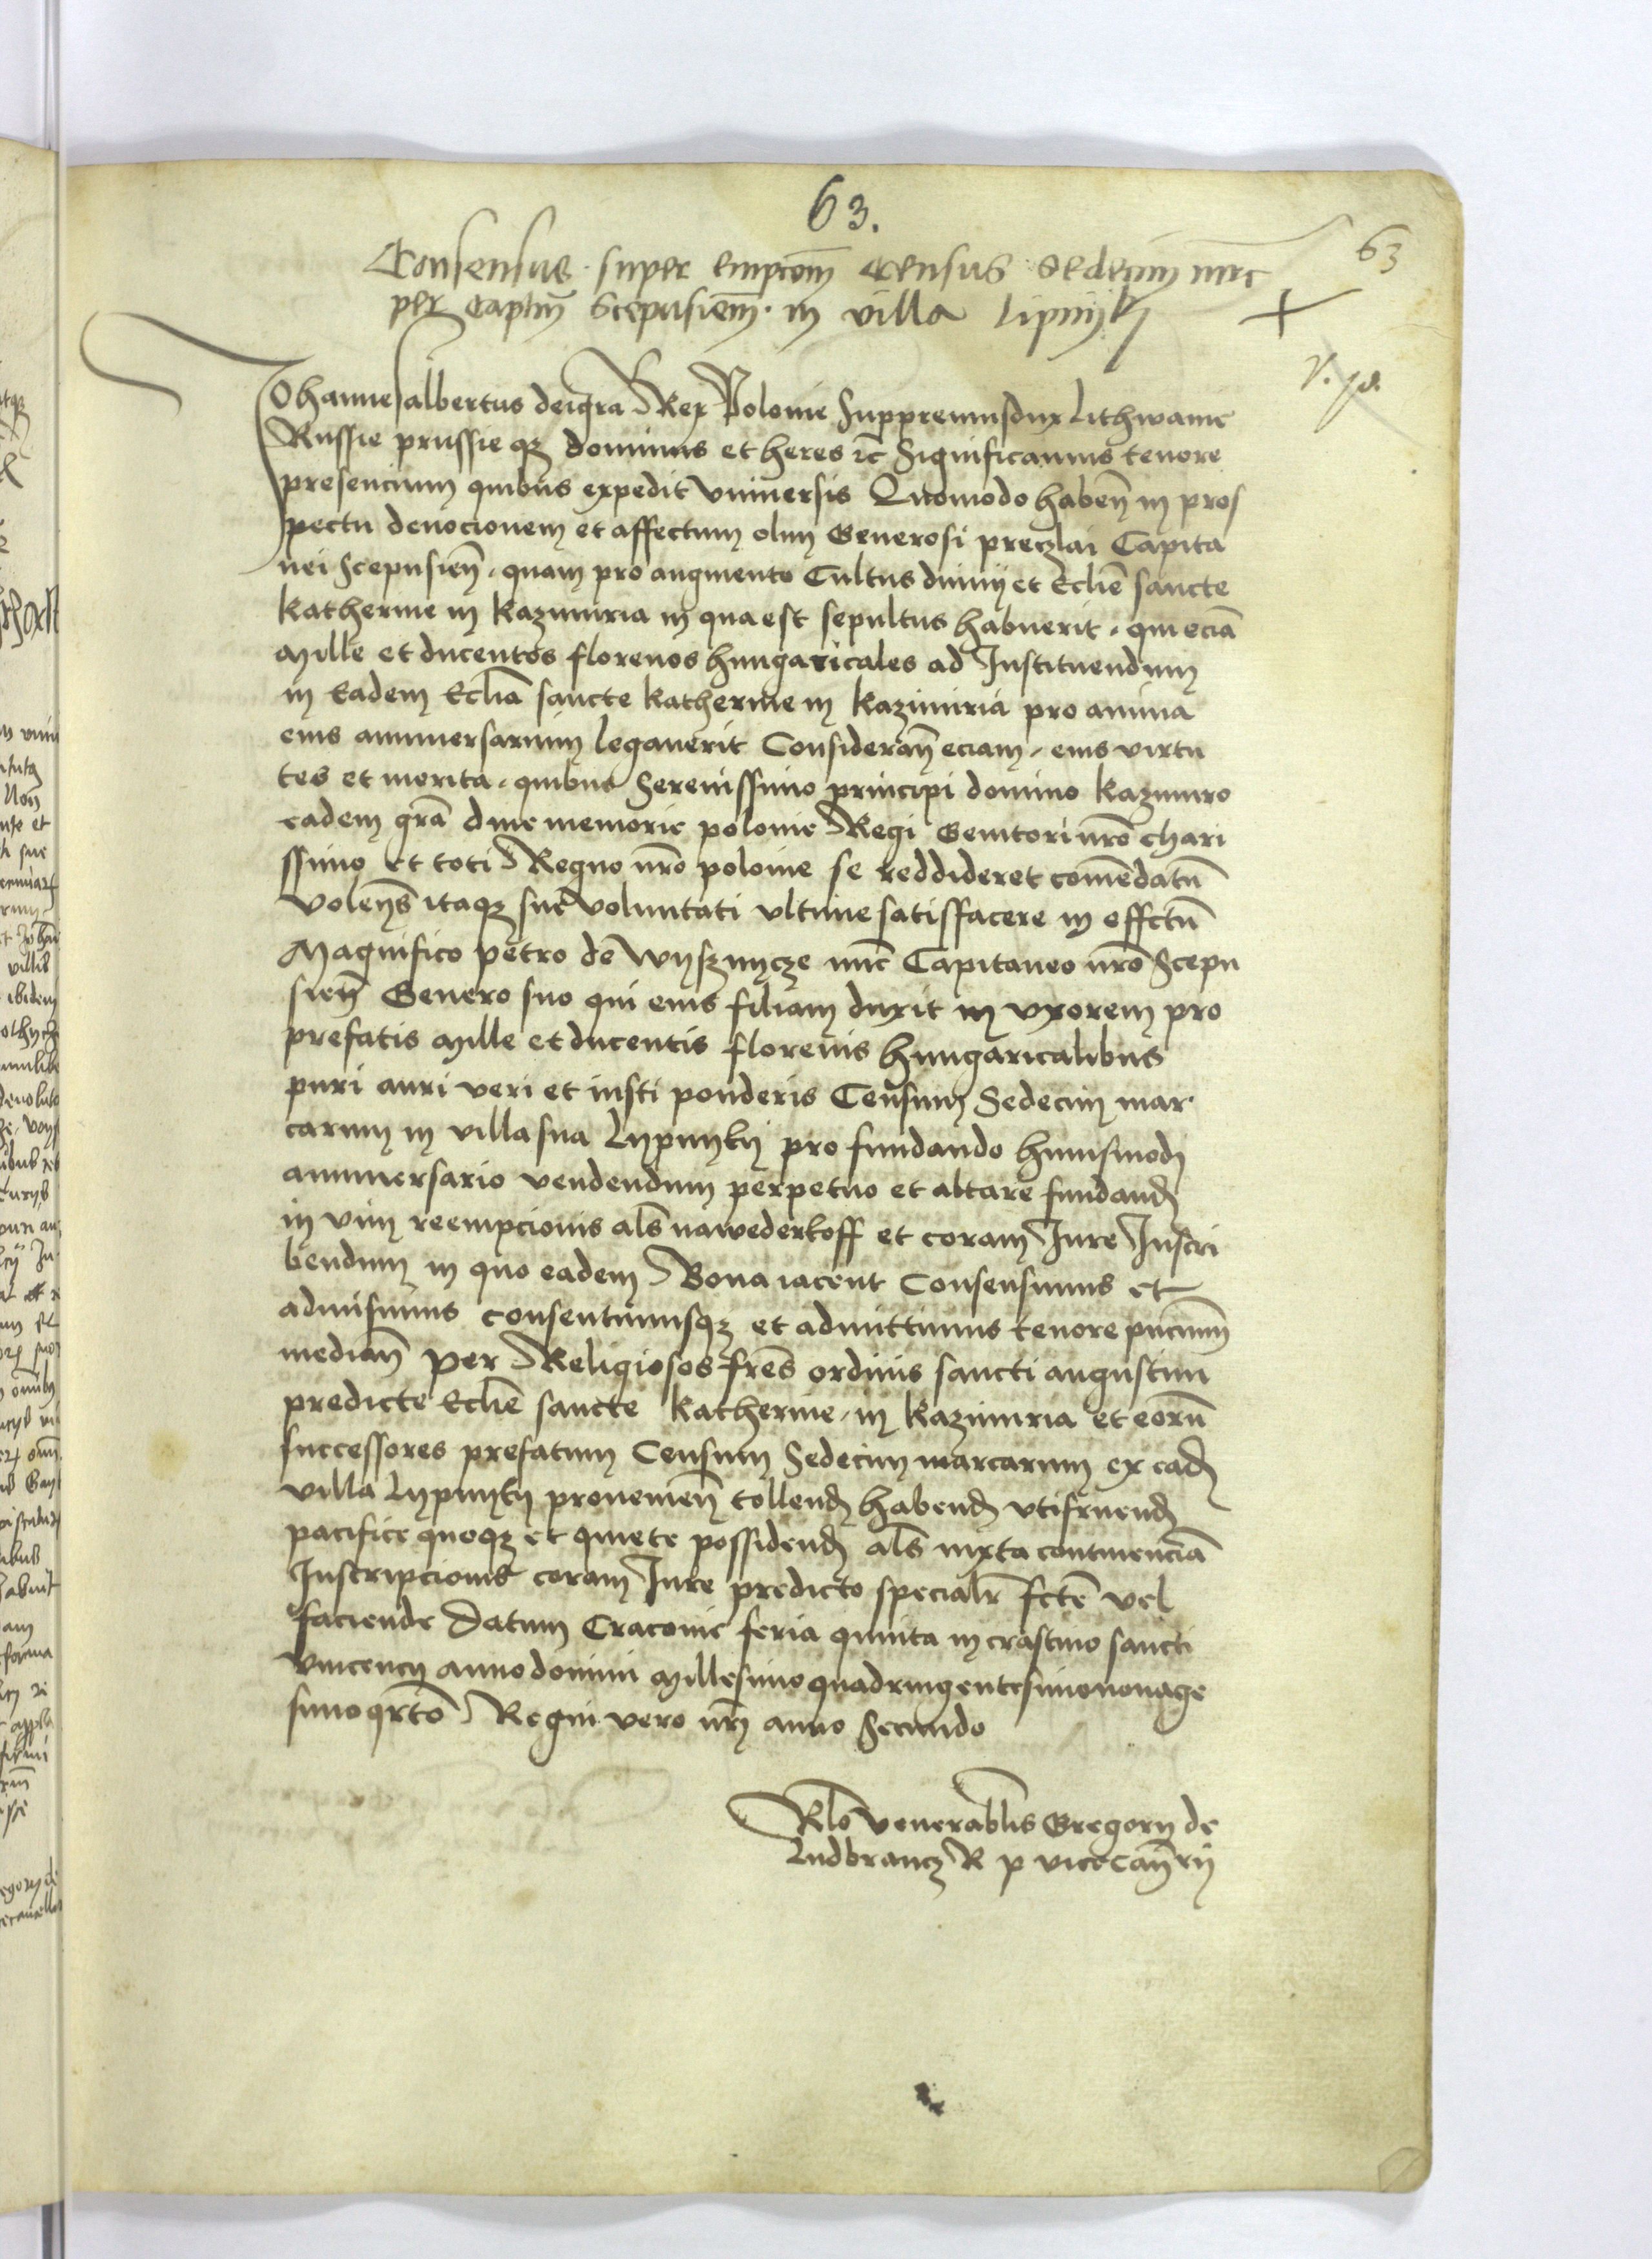 63.
63
Consensus super empcōm census sedecim mrc
per Captm̄ Scepusieñ in villa lipnyk
Johannes albertus dei gra Rex Polonie Suppremusdux Lithwanie
Russie prussie qȝ dominus et heres ꝛc̄ Significamus tenore
presencium quibus expedit vniuersis Quomodo habeñ in pros
pectu deuocionem et affectum olim Generosi preczlai Capita
nei Scepusieñ, quam pro augmento Cultus diuinj et Ecclie sancte
Katherine in Kazimiria in qua est sepultus habuerit, qui eciā
Mille et ducentos florenos hungaricales ad Instituendum
in Eadem Ecclia sancte Katherine in Kazimiria pro anima
eius anniuersarium legauerit Considerañ eciam, eius virtu
tes et merita, quibus Serenissimo principi domino Kazimiro
eadem grā diue memorie polonie Regi Genitori nrō chari
ssimo et toti Regno nrō polonie se reddideret comēdatū
Volenṡ itaqȝ sue voluntati vltime satisfacere in effctū
Magnifico petro de Wysznycze nūc Capitaneo nrō Scepu
sieñ Genero suo qui eius filiam duxit in vxorem pro
prefatis Mille et ducentis florenis hungaricalibus
puri auri veri et iusti ponderis Censum Sedecim mar
carum in villa sua Lypnyky pro fundando huiusmodj
anniuersario vendendum perpetuo et altare fundanđ
in vim reempcionis alš nawederkoff et coram Jure Inscri
bendum in quo eadem Bona iacent Consensimus et
admisimus consentimusqȝ et admittimus tenore pñcium
mediañ per Religiosos frēs ordinis sancti augustini
predicte Ecclie sancte Katherine, in Kazimiria et eorū
successores prefatum Censum Sedecim marcarum ex eađ
villa Lypnyky prouenieñ tollenđ habenđ vtifruenđ
pacifice quoqȝ et quiete possidenđ alš iuxta continenciā
Inscripcionis coram Jure predicto specialr̄ fctē vel
faciende Datum Cracouie feria quinta in crastino sancti
Vincencij anno domini Millesimo quadringentesimo nonage
simo qrto Regni vero nr̄j anno Secundo
Rlo venerablis Gregorij de
Ludbrancz R p vicecañrij